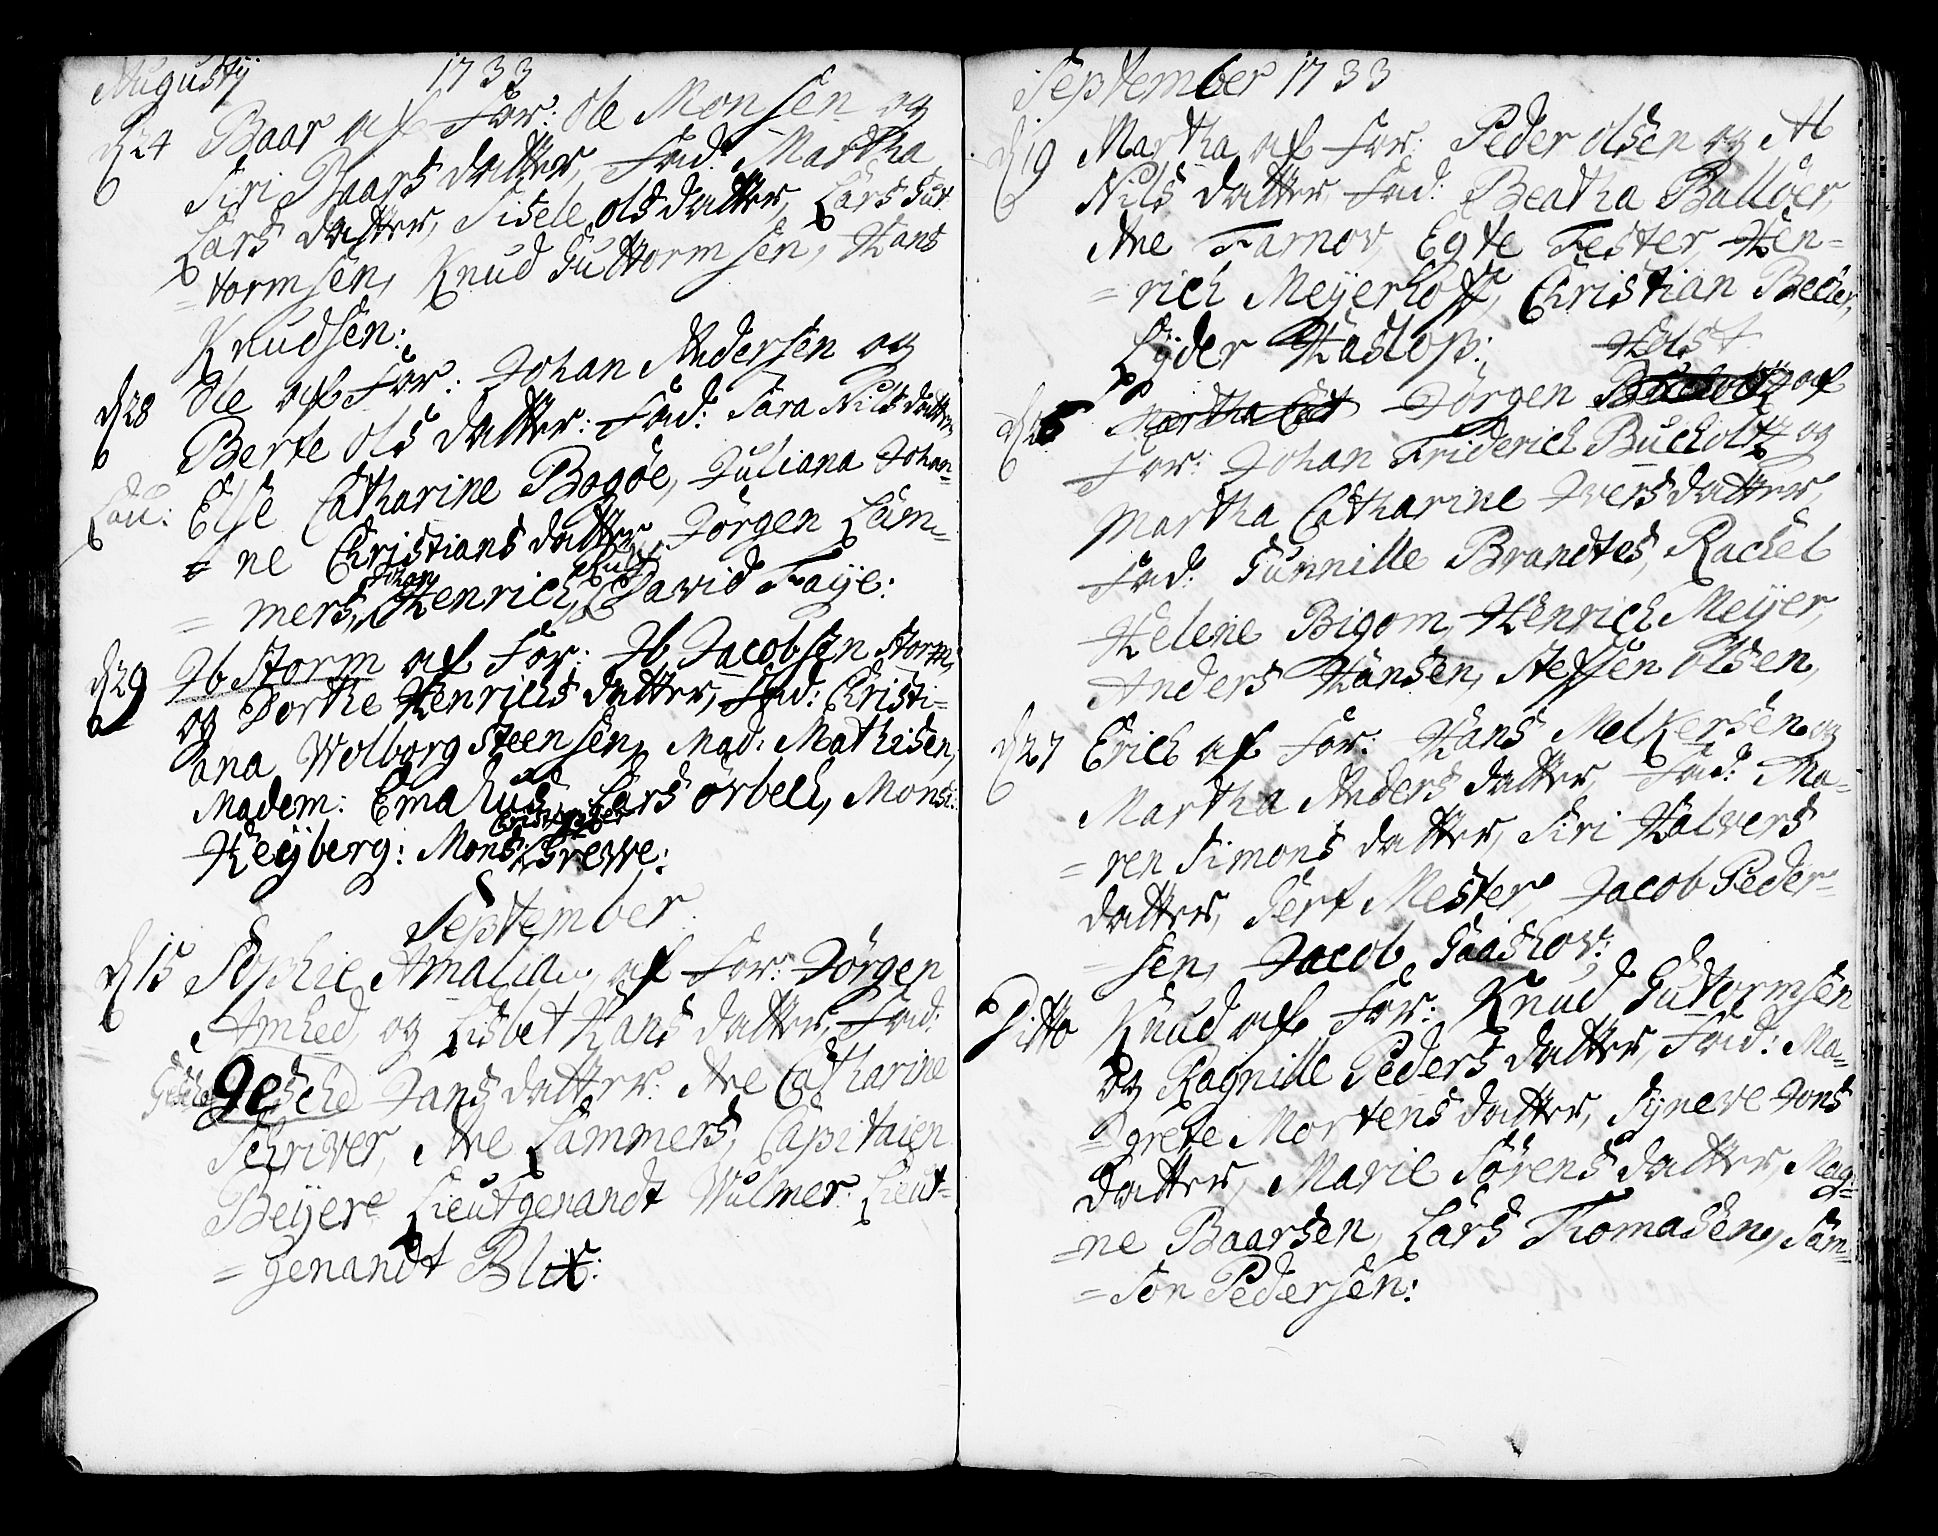 Augustij 1733
d 24 Baar af For: Ole Monsen og
Siri Baars datter, Fad: Martha
Lars datter, Sisele Ols datter, Lars Gut
= tormsen, Knud Guttormsen, Hans
Knudsen:
d 28 Ole af For: Johan Andersen og
Berte Ols datter: Fad: Sara Nils datter
Else Catharine Bogöe, Juliana Johan-
= ne Christians datter, Jörgen Lam-
= mers, Johan Henrich, David Faije:
d 29 Ib Storm af For: Ib Jacobsen Storm,
og Dorthe Henrichs datter, Fad: Christi-
ana Wolborg Steensen, Mad: Mathisen,
Madem: Emahus, Lars Örbech, Mons:
Heijberg: Mons: Christopher Grewe:
September
d 15 Sophie Amalia af For: Jörgen
Amhed, og Lisbet Hans datter, Fad:
Gesche Jans datter: Ane Catharine
Schriver, Ane Lammers, Capitaien
Beijer Lieutgenandt Wulmer: Lieut-
= genandt Blix:
September 1733
d 19 Martha af For: Peder Olsen og A
Nils datter Fad: Beatha Ballöer,
Ane Farnov, Egte Fester, Hen=
= rich Meijerhoff, Christian Becher,
Lyder Haslop: Holst
d 25 Martha Cat Jörgen Bucholtz af
For: Johan Friderich Bucholtz og
Martha Catharine Ivers datter,
Fad: Gunnille Brandtes, Rachel
Helene Bigom, Henrich Meijer,
Anders Hansen, Steffen Olsen,
d 27 Erich af For: Hans Melkersen og
Martha Anders datter, Fad: Ma-
= ren Simons datter, Siri Halvers
datter, Gert Mester, Jacob Peder-
= sen, Jacob Gaashov:
Ditto Knud af For: Knud Gutormsen
og Ragnille Peders datter, Fad: Ma-
= grete Mortens datter, Syneve Jons
datter, Marie Sörens datter, Mag-
= ne Baarsen, Lars Thomasen, Sam-
= son Pedersen: